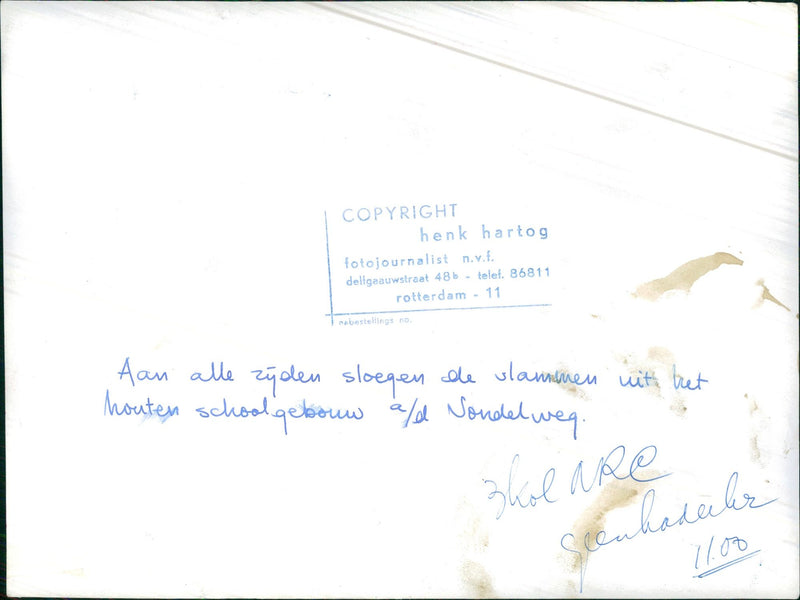 COPYRIGHT
henk hartog
fotojournalist n.v.f.
delfgaauwstraat 48b - telef. 86811
rotterdam - 11
nabestellings no.
Aan alle zijden sloegen de vlammen uit het
houten schoolgebouw a/d Vondelweg.
3kol NRC
11.00